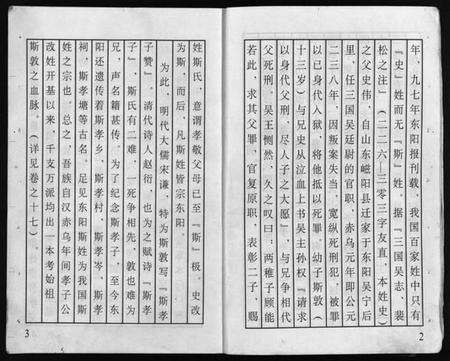 年，九七年东阳报刊载，我国百家姓中只有
『史』姓而无『斯』姓。据『三国吴志，裴
松之注』（二二六—三〇三字友直，本姓史）
之父史伟，自山东嵫阳县迁家于东阳吴宁后
里，任三国吴廷尉的官职，赤乌元年即公元
二三八年，因叛案失当，宽纵死刑犯，被罪
以已身代入狱，将他抵以死罪，幼子斯敦（
十三岁）与兄史从泣血上书吴主孙权『请求
以身代父刑，尽人子之大愿』，与兄争相代
父死刑，吴王恻然，久之叹曰：两稚子顾能
若此，求其父罪，官复原职，表彰二子，赐
2
姓斯氏，意谓孝敬父母已至『斯』极，史改
为斯，而后，凡斯姓皆宗东阳。
为此，明代大儒宋谦，特为斯敦写『斯孝
子赞』，清代诗人赵衍，也为之赋诗『斯孝
子』，斯氏有二难，一死争相先，敦也难为
兄，声名籍甚传。为了纪念斯孝子，至今东
阳还遗传着斯孝乡、斯孝村、斯孝岭、斯孝
祠、斯孝塘等古名，足见东阳斯姓为我国斯
姓之宗也。总之，吾族自汉赤乌年间孝子公
改姓开基以来，千支万派均出一本考始祖
斯敦之血脉。（详见卷之十七）
3